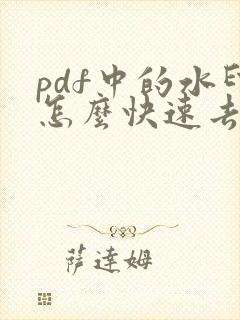 pdf中的水印
怎麼快速去
萨達姆